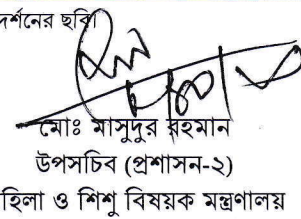 দর্শনের ছবি।
মোঃ মাসুদুর রহমান
উপসচিব (প্রশাসন-২)
হিলা ও শিশু বিষয়ক মন্ত্রণালয়